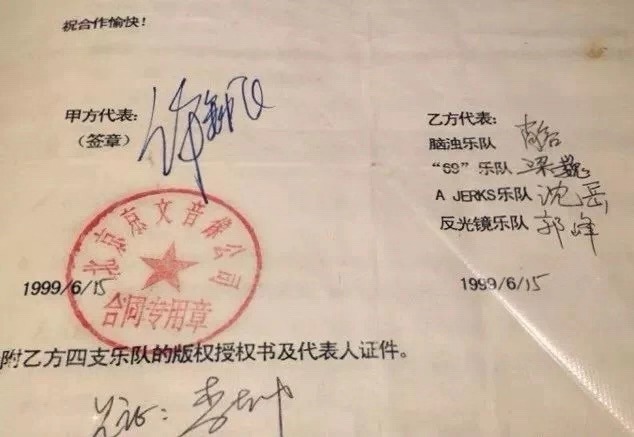 祝合作愉快！
甲方代表：
（签章）
北京京文音像公司
合同专用章
1999/6/15
乙方代表：
脑浊乐队 肖容
“69”乐队 梁巍
A JERKS乐队 沈岳
反光镜乐队 郭峰
1999/6/15
附乙方四支乐队的版权授权书及代表人证件。